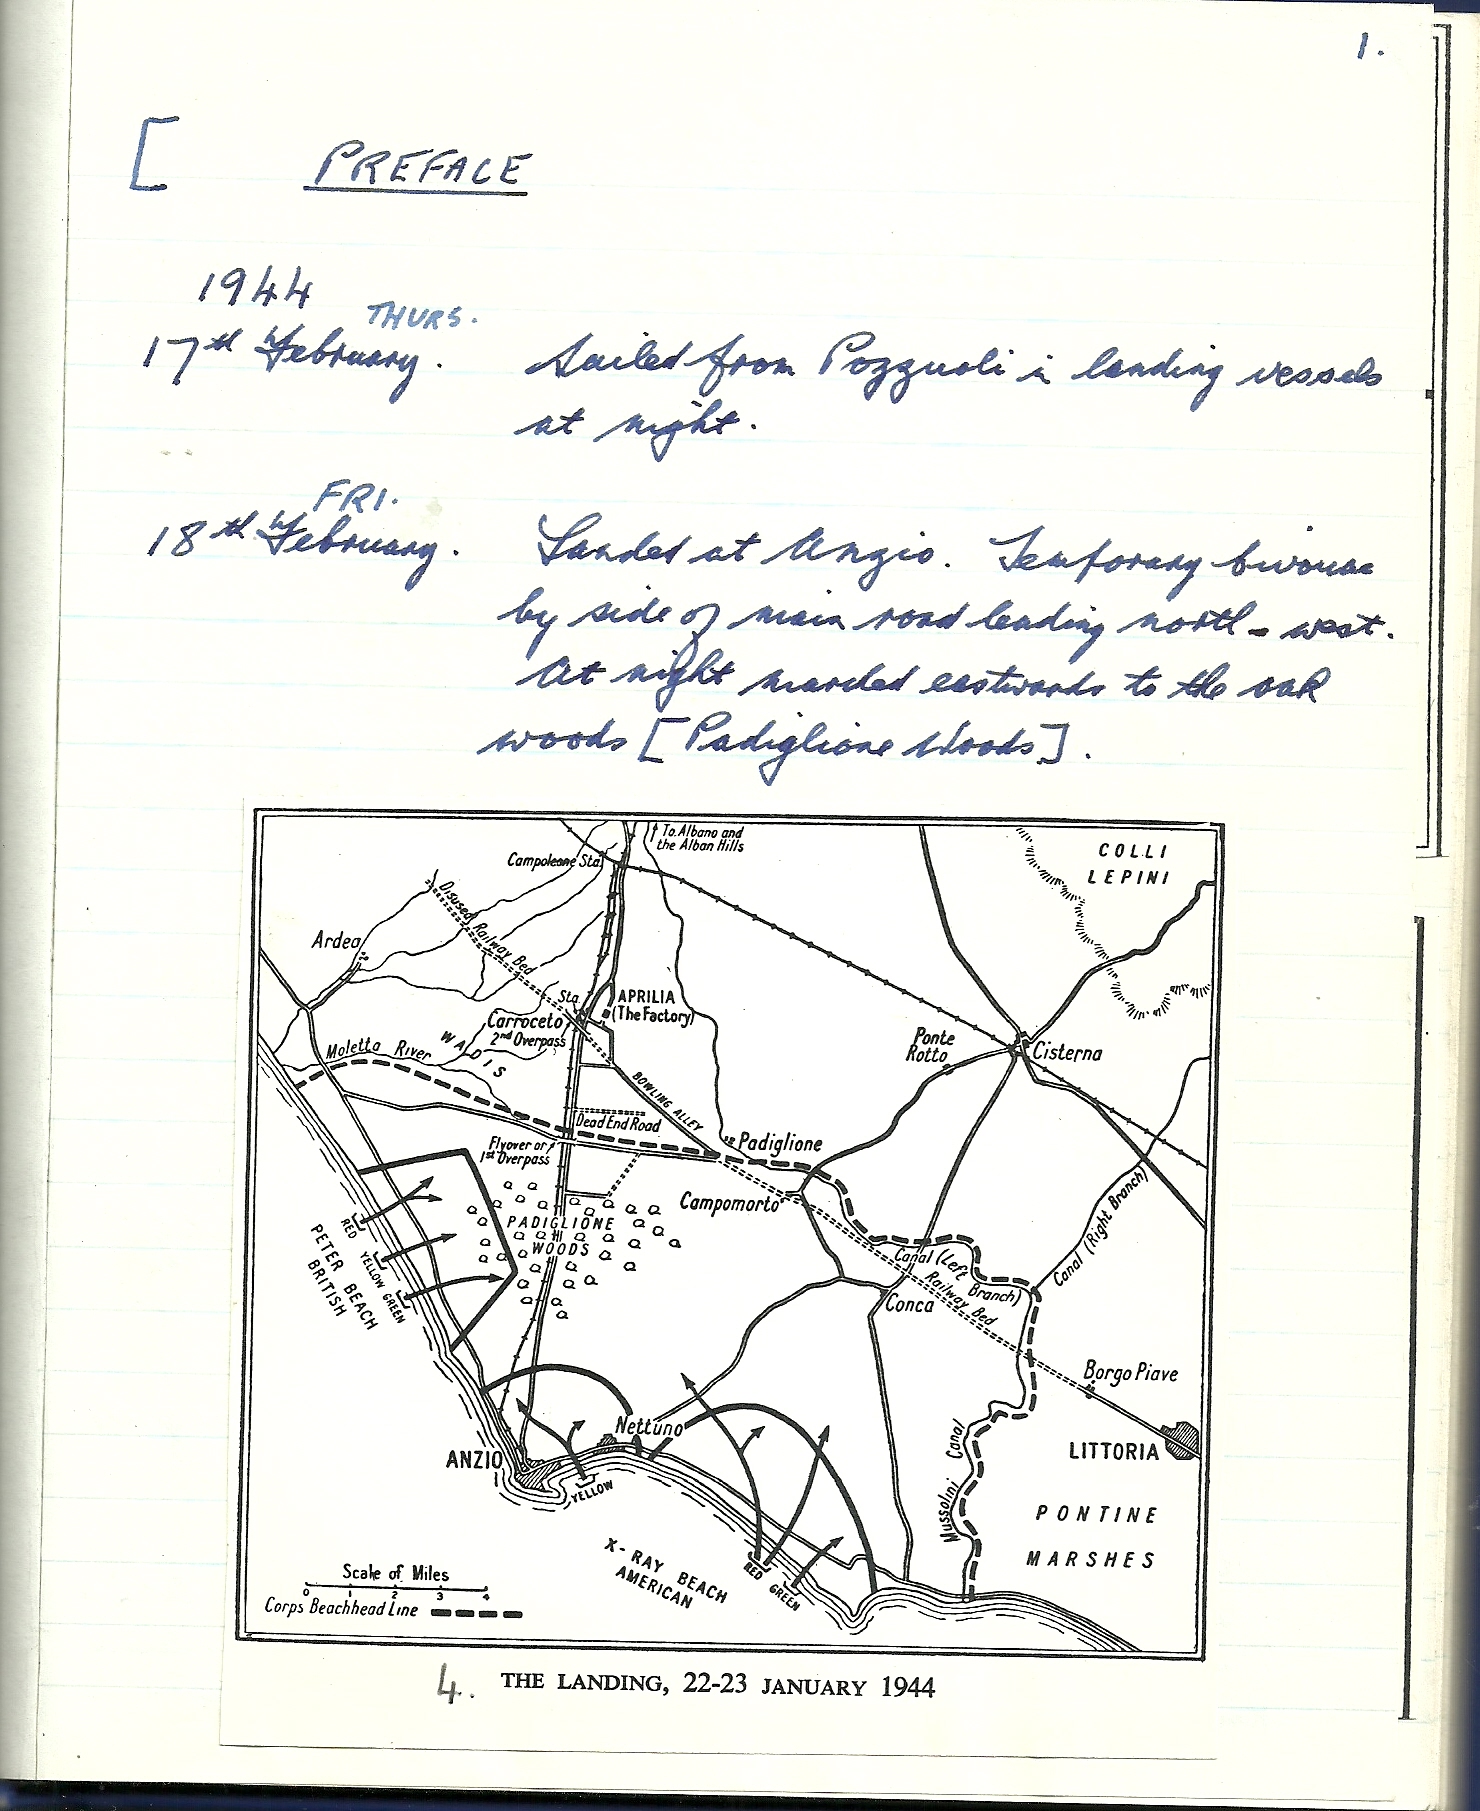 1.
[ PREFACE
1944
THURS.
17th February. Sailed from Pozzuoli in landing vessels
at night.
FRI.
18th February. Landed at Anzio. Temporary bivouac
by side of main road leading north-west.
At night marched eastwards to the oak
woods [Padiglione Woods].
To Albano and
the Alban Hills
Campoleone Sta.
COLLI
LEPINI
Disused Railway Bed
Ardea
Sta.
APRILIA
(The Factory)
Carroceto
2nd Overpass
Moletta River
WADIS
Ponte
Rotto
Cisterna
BOWLING ALLEY
Dead End Road
Flyover or
1st Overpass
Padiglione
Campomorto
PADIGLIONE
WOODS
Canal (Right Branch)
RED
YELLOW
GREEN
PETER BEACH
BRITISH
Canal (Left
Branch)
Railway Bed
Conca
Borgo Piave
Nettuno
ANZIO
YELLOW
LITTORIA
Mussolini Canal
PONTINE
MARSHES
X-RAY BEACH
AMERICAN
RED
GREEN
Scale of Miles
0 1 2 3 4
Corps Beachhead Line
4. THE LANDING, 22-23 JANUARY 1944